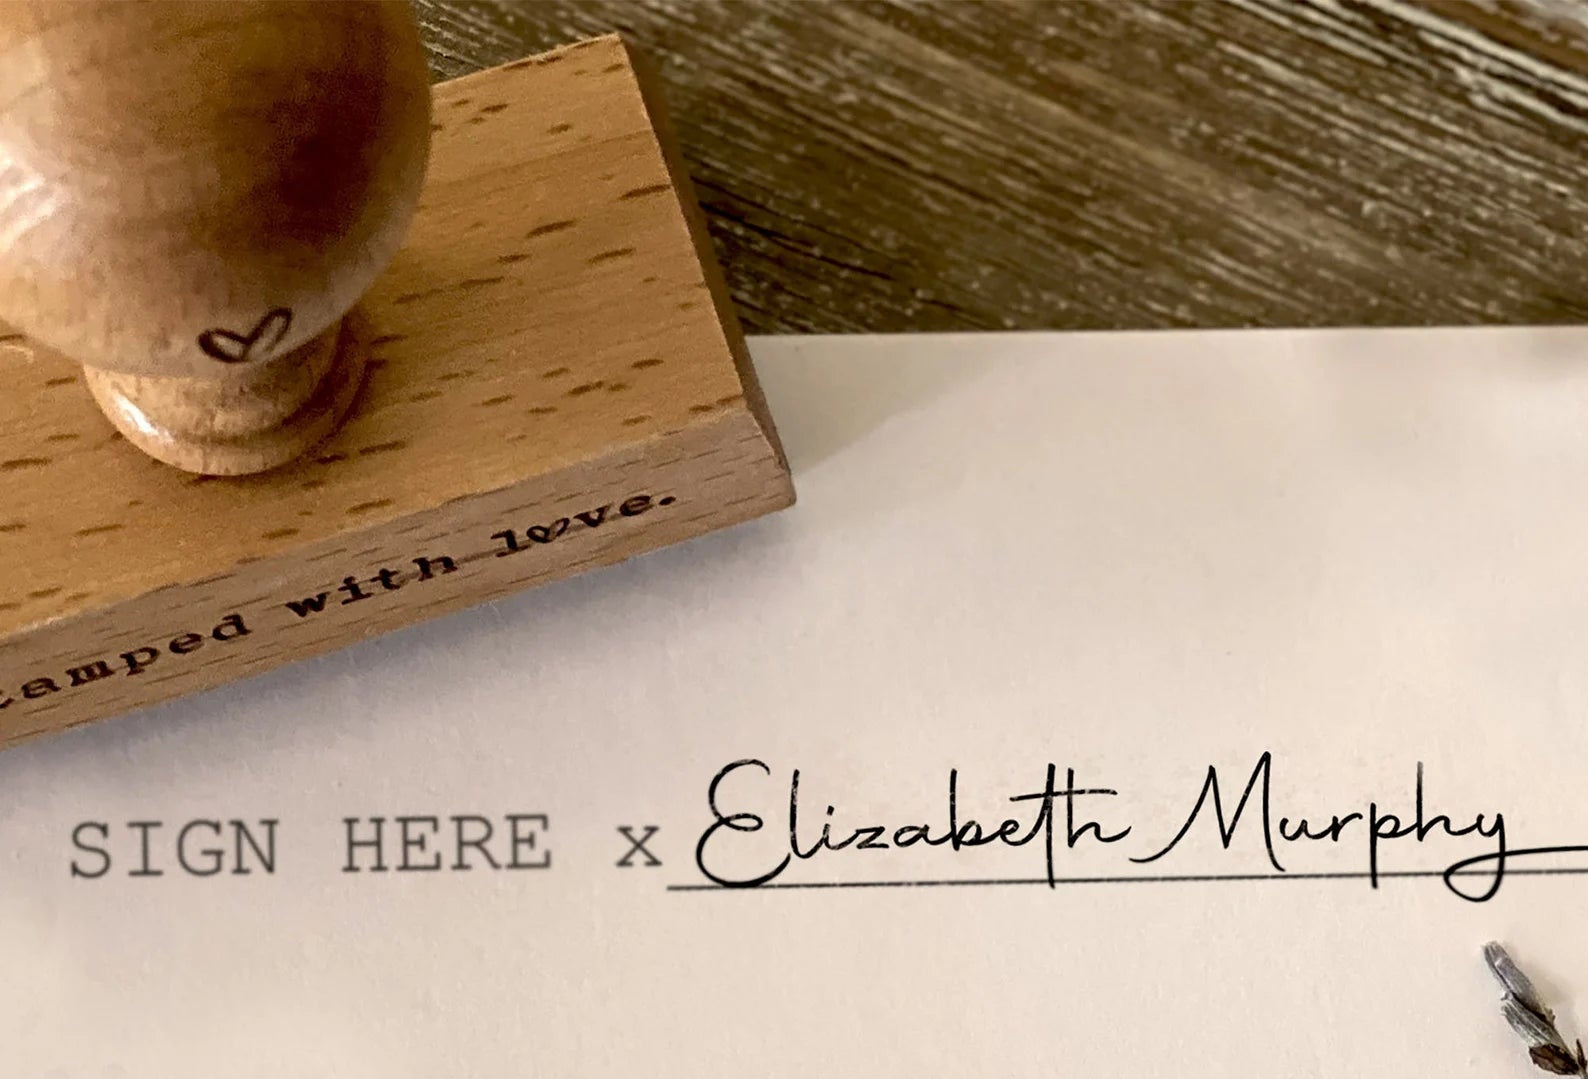 tamped with love.
SIGN HERE x Elizabeth Murphy